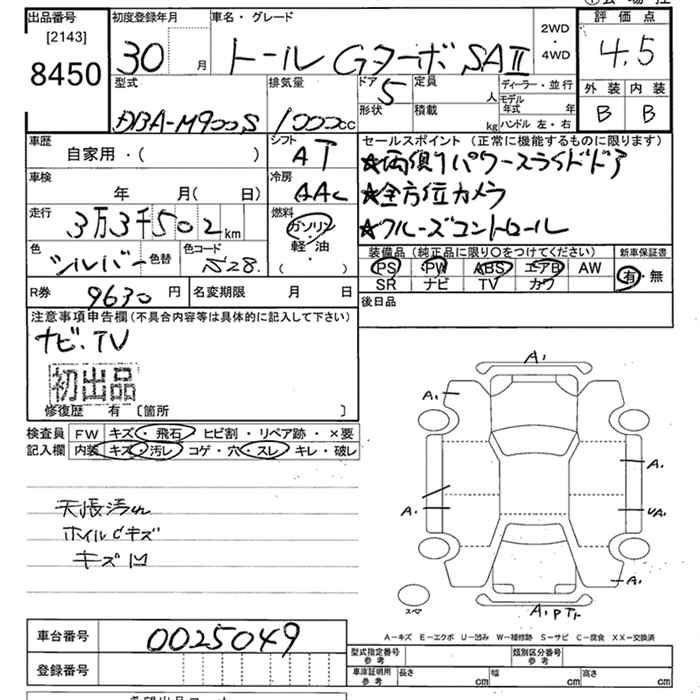 出品番号
[2143]
8450
初度登録年月
30 月
車名・グレード
トール Gターボ SAⅡ
2WD
・
4WD
評価点
4.5
外装 内装
B B
型式
DBA-M900S
排気量
1000cc
ドア 5
形状
定員 人
積載 kg
ディーラー・並行
モデル年式 年
ハンドル 左・右
車歴
自家用・( )
シフト
AT
セールスポイント (正常に機能するものに限ります)
★両側パワースライドドア
★全方位カメラ
★クルーズコントロール
車検
年 月( 日)
冷房
AAC
走行
3万3千502km
燃料
ガソリン
軽・油
( )
色
シルバー
色替
色コード
S28.
装備品 (純正品に限り○をつけてください)
PS PW ABS エアB AW
SR ナビ TV カワ
新車保証書
有・無
R券 9630円
名変期限 月 日
後日品
注意事項申告欄(不具合内容等は具体的に記入して下さい)
ナビ・TV
初出品
修復歴 有 〔箇所 〕
検査員
記入欄
FW キズ・飛石 ヒビ割・リペア跡・×要
内装 キズ・汚レ コゲ・穴・スレ キレ・破レ
天張汚れ
ホイルCキズ
キズ凹
A1
A1
A1
A1
UA1
A1
A1
スペア
車台番号 0025049
登録番号
A-キズ E-エクボ U-凹み W-補修跡 S-サビ C-腐食 XX-交換済
型式指定番号
参考
類別区分番号
参考
車庫証明用
参考
長さ cm 幅 cm 高さ cm